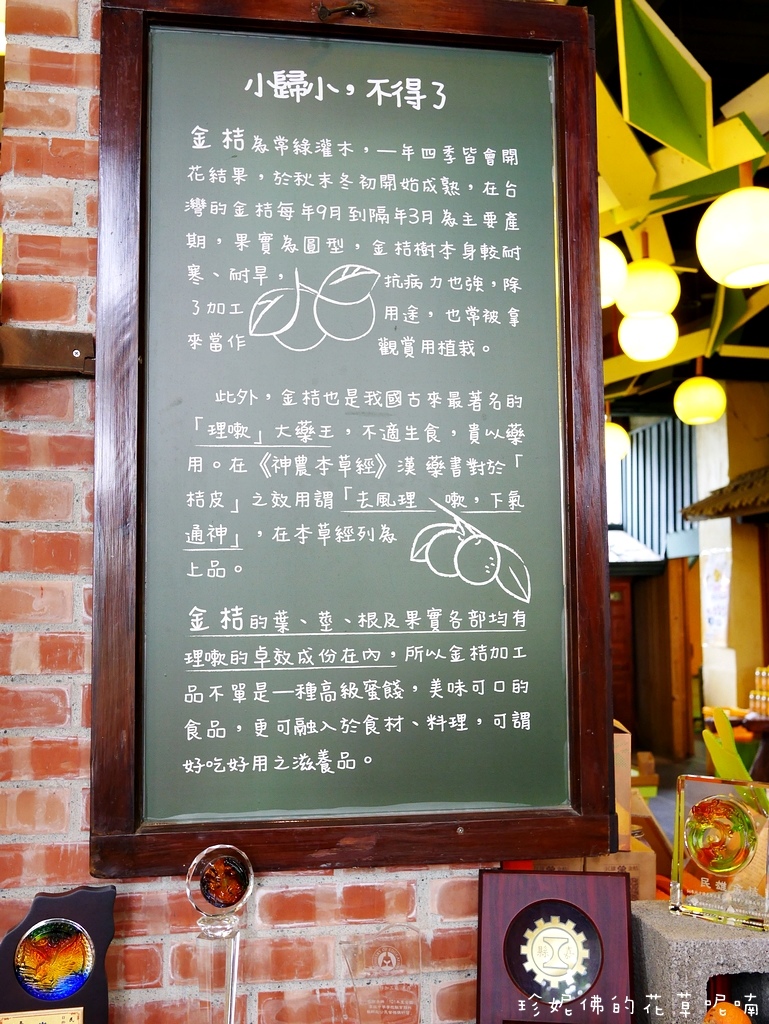 小歸小，不得了
金桔為常綠灌木，一年四季皆會開
花結果，於秋末冬初開始成熟，在台
灣的金桔每年9月到隔年3月為主要產
期，果實為圓型，金桔樹本身較耐
寒、耐旱，抗病力也強，除
了加工用途，也常被拿
來當作觀賞用植栽。
此外，金桔也是我國古來最著名的
「理嗽」大藥王，不適生食，貴以藥
用。在《神農本草經》漢藥書對於「
桔皮」之效用謂「去風理嗽，下氣
通神」，在本草經列為
上品。
金桔的葉、莖、根及果實各部均有
理嗽的卓效成份在內，所以金桔加工
品不單是一種高級蜜餞，美味可口的
食品，更可融入於食材、料理，可謂
好吃好用之滋養品。
民雄
珍妮佛的花草呢喃